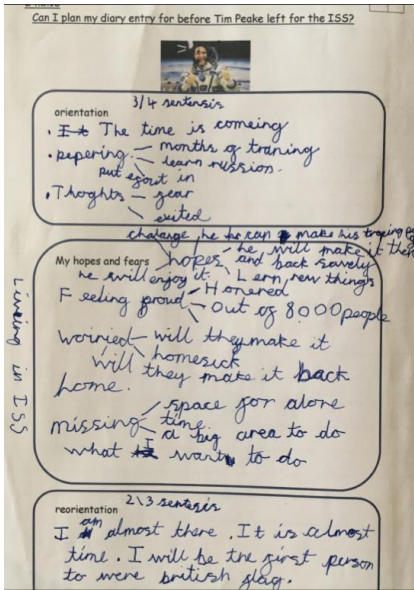 Can I plan my diary entry for before Tim Peake left for the ISS?
3/4 sentensis
orientation
• The time is comeing
• pepering – months of traning
learn russion.
put efout in
• Thoghts – fear
exited
challange he can make his
hopes he will make it
My hopes and fears and back savely
he will enjoy it. Lern new things
Feeling proud Honered
Out of 8000 people
worried – will they make it
homesick
will they make it back
home.
missing – space for alone
time
a big area to do
what I want to do
Linving in ISS
2\3 sentesis
reorientation
I am almost there. It is almost
time. I will be the first person
to were british flag.